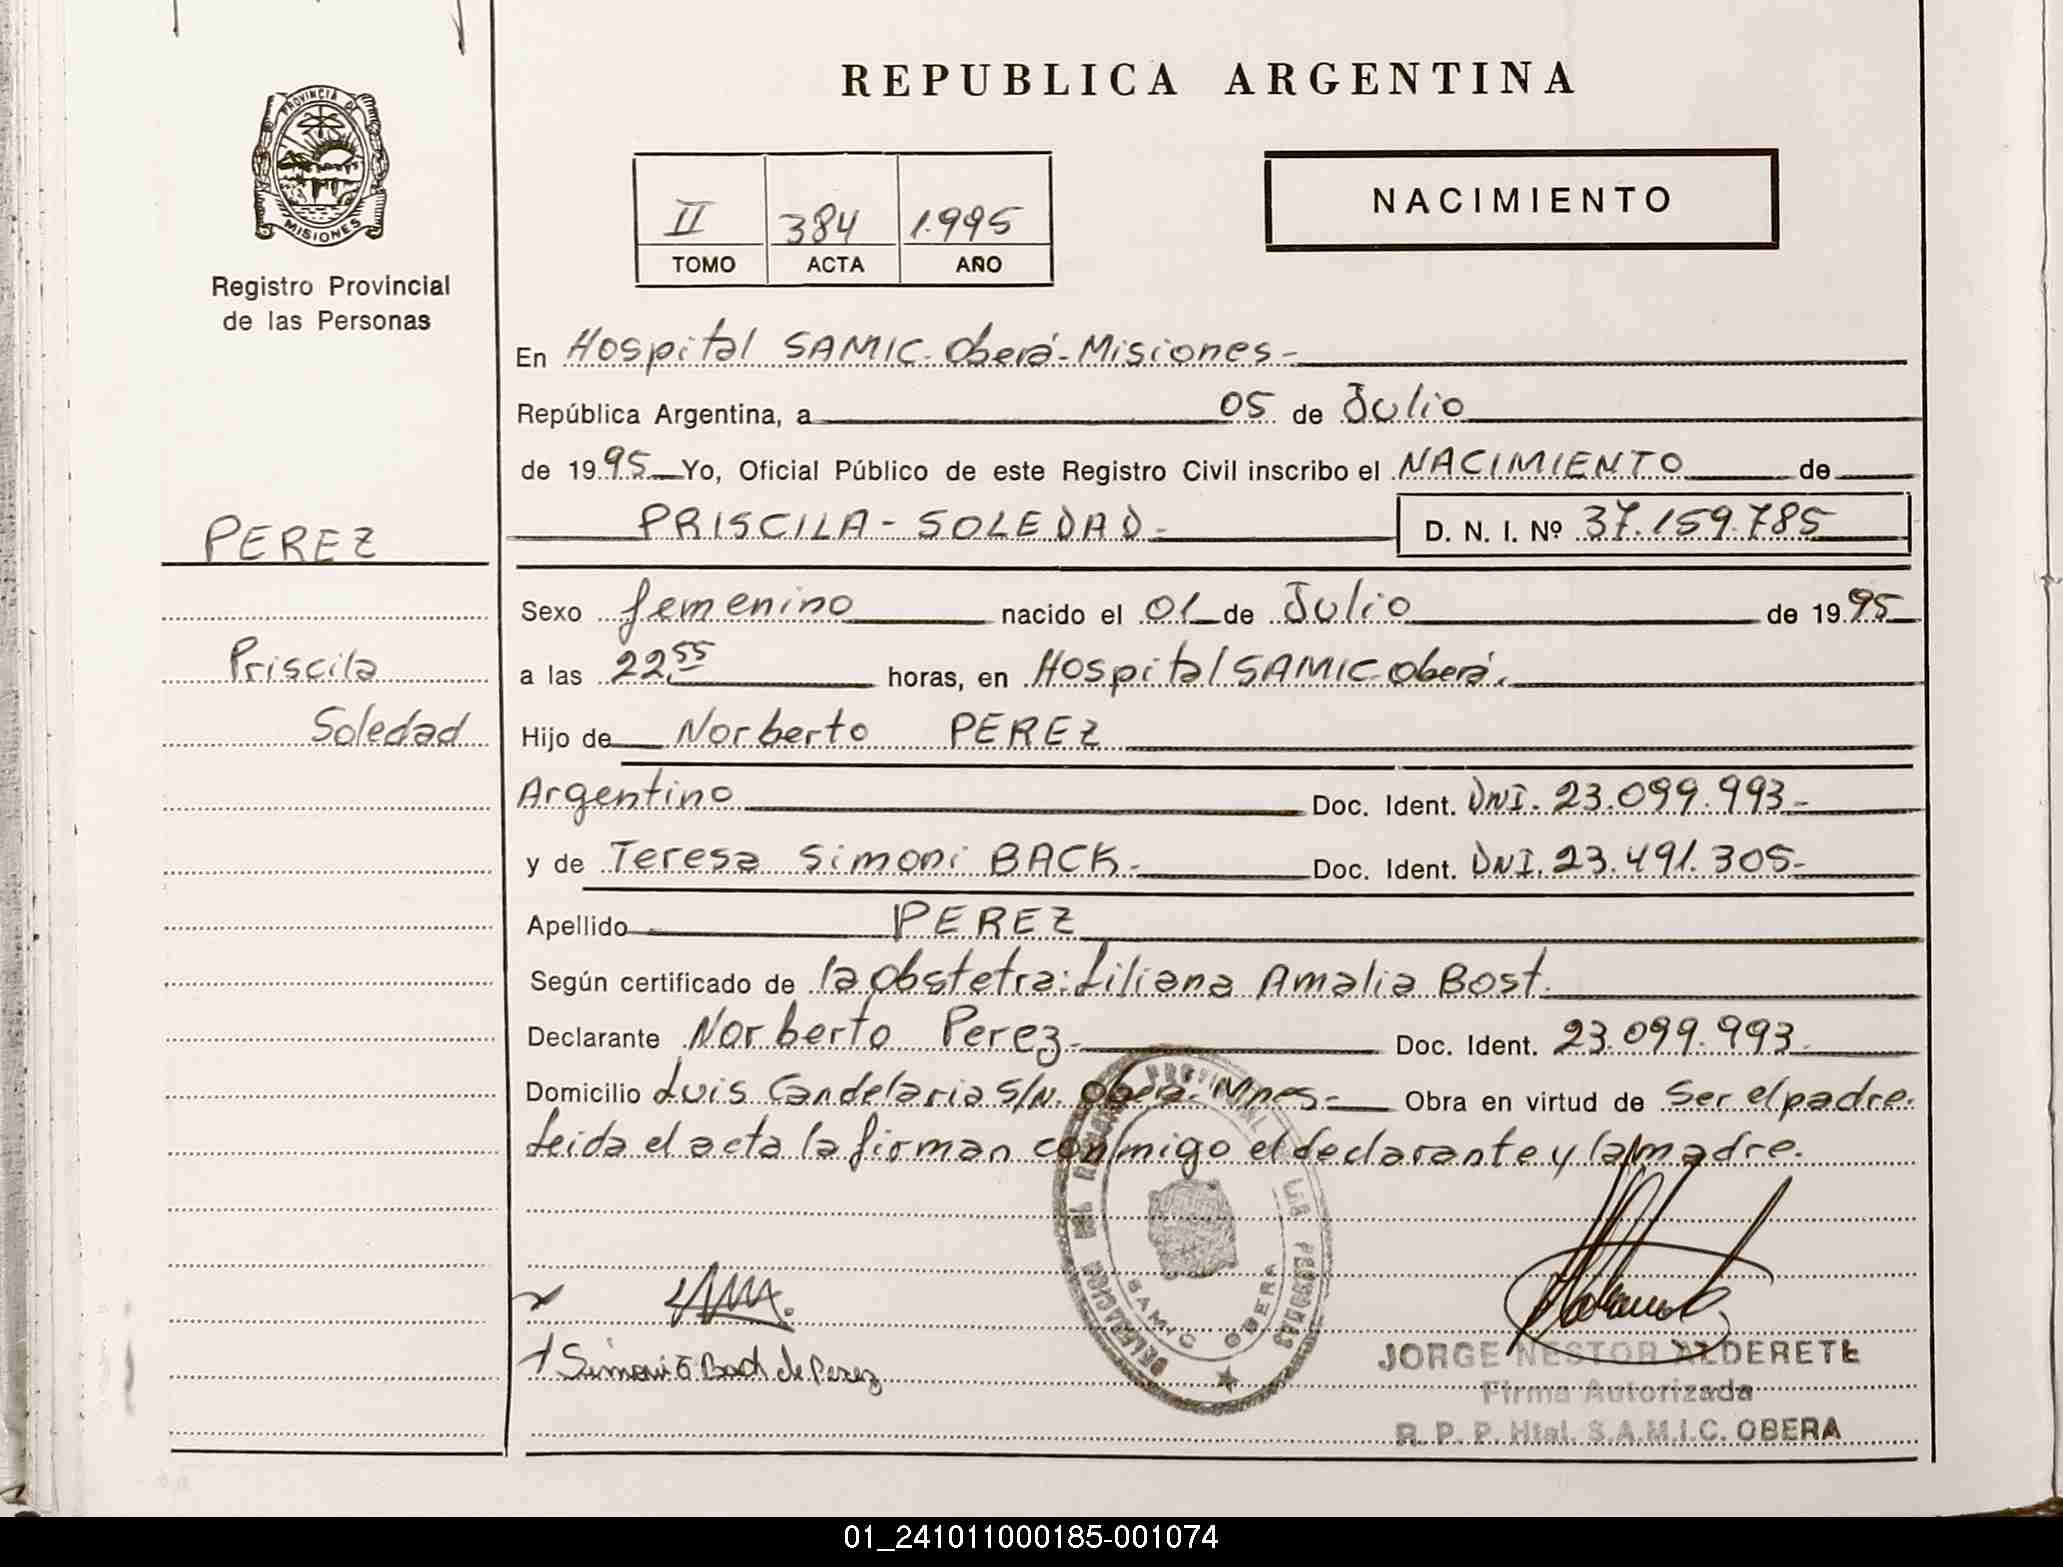 REPUBLICA ARGENTINA
PROVINCIA DE
MISIONES
Registro Provincial
de las Personas
II 384 1.995
TOMO ACTA AÑO
NACIMIENTO
En Hospital SAMIC-Oberá-Misiones-
República Argentina, a 05 de Julio
de 1995 Yo, Oficial Público de este Registro Civil inscribo el NACIMIENTO de
PRISCILA-SOLEDAD- D. N. I. Nº 37.159.785
PEREZ
Priscila
Soledad
Sexo femenino nacido el 01 de Julio de 1995
a las 22,55 horas, en Hospital SAMIC Oberá.
Hijo de Norberto PEREZ
Argentino Doc. Ident. DNI. 23.099.993-
y de Teresa Simoni BACK- Doc. Ident. DNI. 23.491.305-
Apellido PEREZ
Según certificado de la Obstetra: Liliana Amalia Bost.
Declarante Norberto Perez- Doc. Ident. 23.099.993
Domicilio Luis Candelaria S/N. Oberá-Mnes- Obra en virtud de Ser el padre.
Leida el acta la firman conmigo el declarante y la madre.
Simoni Back de Perez
SAMIC OBERA
JORGE NESTOR ALDERETE
Firma Autorizada
R. P. P. Htal. S.A.M.I.C. OBERA
01_241011000185-001074